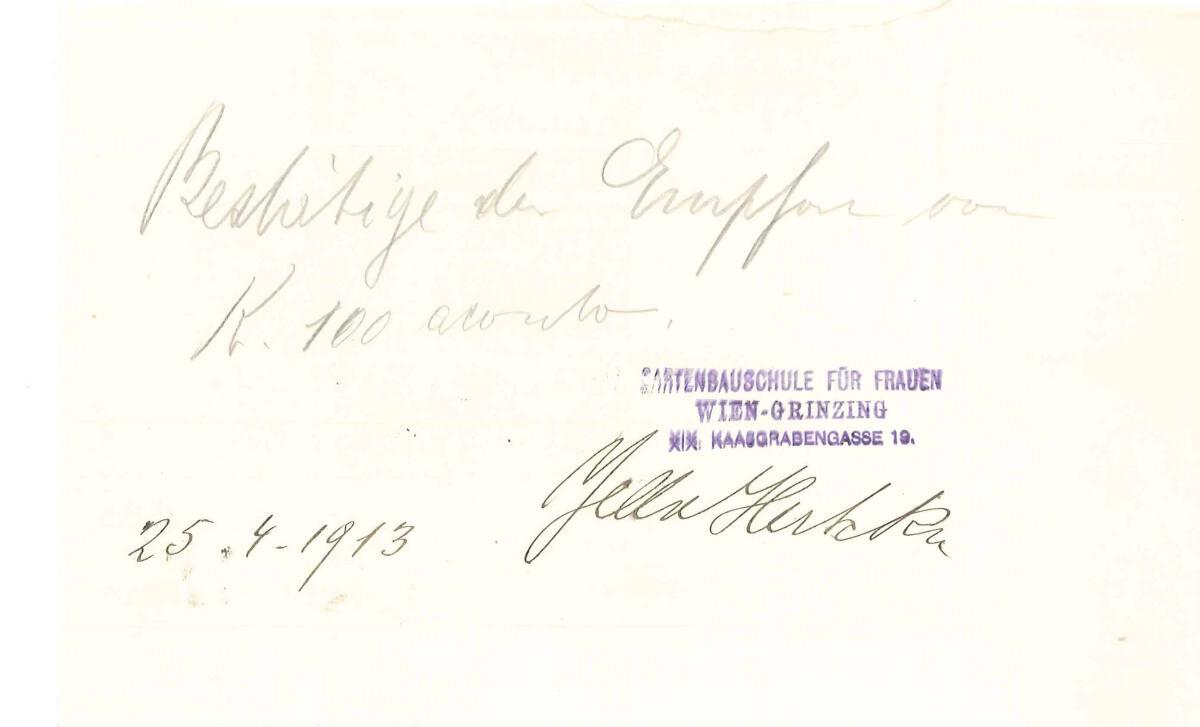 Bestätige den Empfang von
K. 100 aconto.
GARTENBAUSCHULE FÜR FRAUEN
WIEN-GRINZING
XIX. KAASGRABENGASSE 19.
Yella Hertzka
25.4-1913